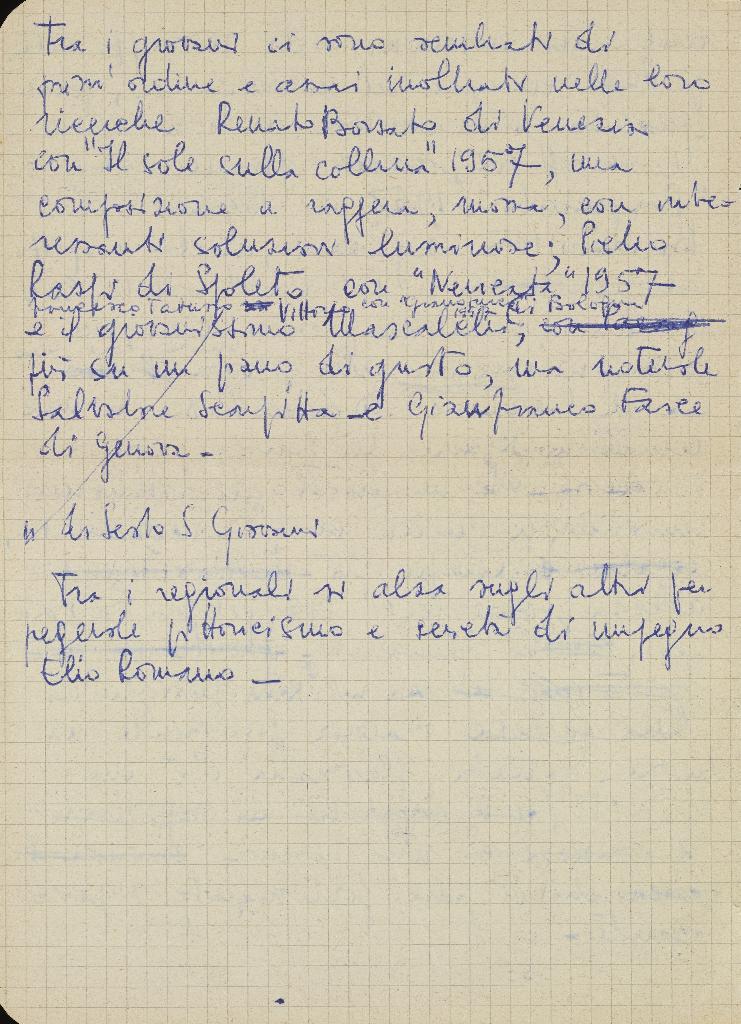 Tra i giovani ci sono sembrati di
prim'ordine e assai inoltrati nelle loro
ricerche Renato Borsato di Venezia
con "Il sole sulla collina" 1957, una
composizione a raggera, mossa, con inte-
ressanti soluzioni luminose; Piero
Raspi di Spoleto con 1957
Francesco Tabusso Vittorio con di Bologna
e il giovanissimo Mascalchi,
più su un piano di gusto, ma notevole
Salvatore Scarpitta - e Gianfranco Fasce
di Genova -
" di Sesto S Giovanni
Tra i regionali si alza sugli altri per
pittoricismo e serietà di impegno
Elio Romano -